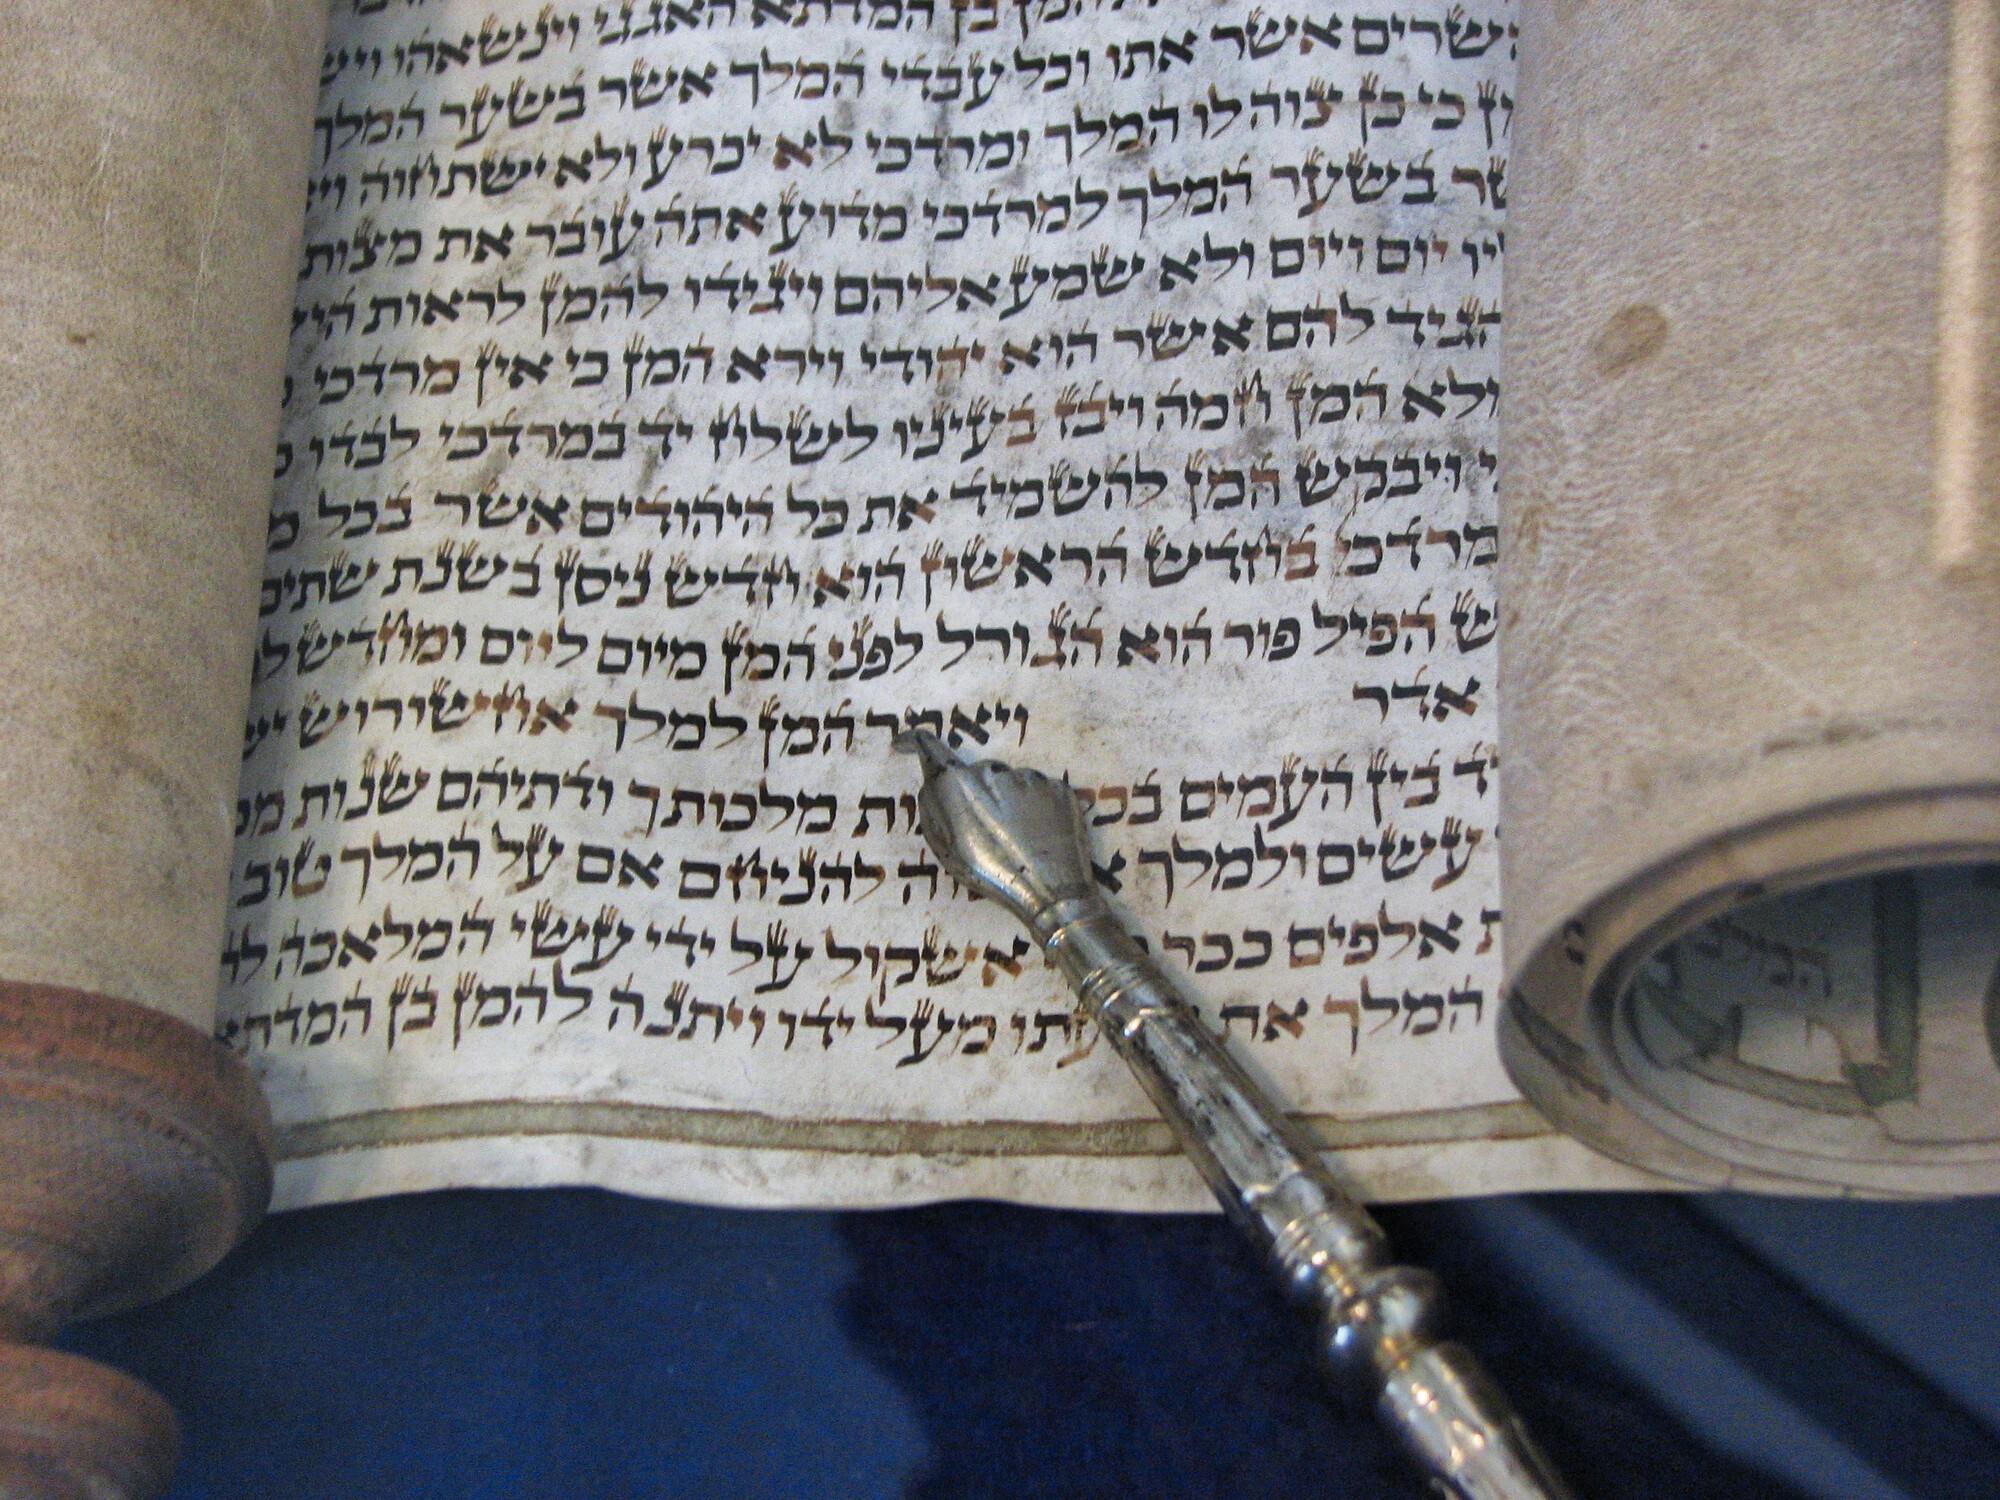 המן בן המדתא האגגי וינשאהו
השרים אשר אתו וכל עבדי המלך אשר בשער המלך
כי כן צוה לו המלך ומרדכי לא יכרע ולא ישתחוה
אשר בשער המלך למרדכי מדוע אתה עובר את מצות
יום ויום ולא שמע אליהם ויגידו להמן לראות
הגיד להם אשר הוא יהודי וירא המן כי אין מרדכי
המן חמה ויבז בעיניו לשלוח יד במרדכי לבדו
ויבקש המן להשמיד את כל היהודים אשר בכל
מרדכי בחדש הראשון הוא חדש ניסן בשנת שתים
הפיל פור הוא הגורל לפני המן מיום ליום ומחדש
אדר ויאמר המן למלך אחשורוש
בין העמים מלכותך ודתיהם שנות
עשים ולמלך להניחם אם על המלך טוב
אלפים ככר אשקול על ידי עשי המלאכה
המלך את מעל ידו ויתנה להמן בן המדתא